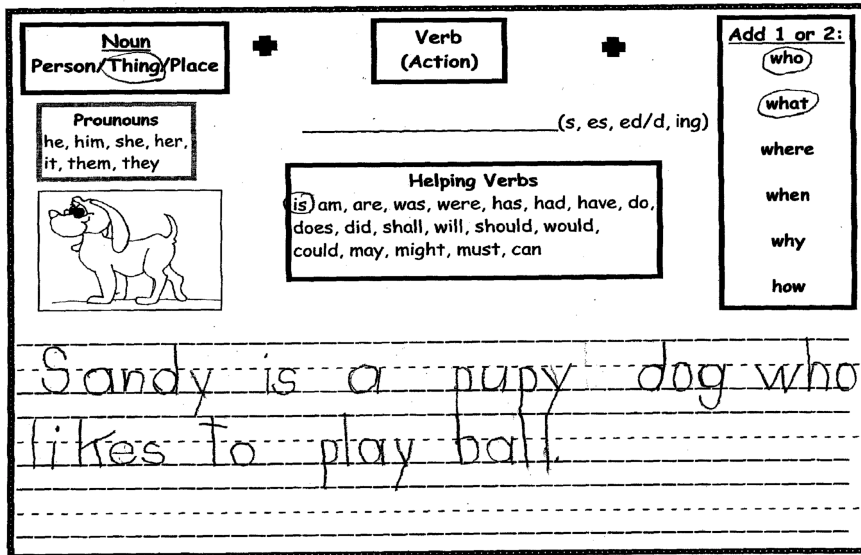 Noun
Person/Thing/Place
Verb
(Action)
Add 1 or 2:
who
what
where
when
why
how
Prounouns
he, him, she, her,
it, them, they
(s, es, ed/d, ing)
Helping Verbs
is, am, are, was, were, has, had, have, do,
does, did, shall, will, should, would,
could, may, might, must, can
Sandy is a pupy dog who
likes to play ball.